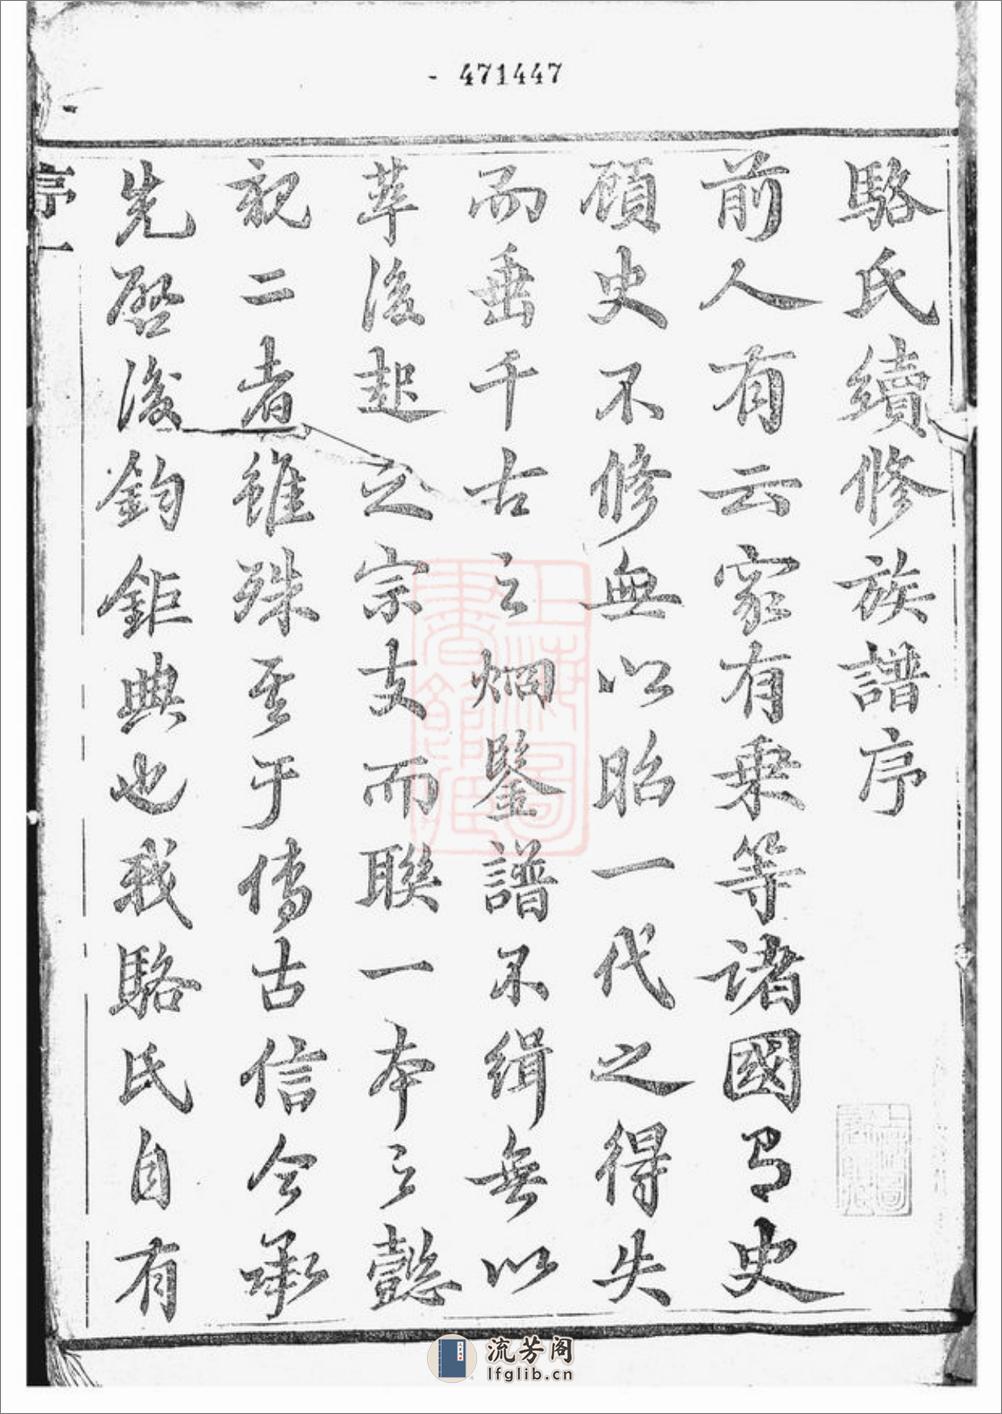 471447
駱氏續修族譜序
前人有云家有乗等諸國有史
顧史不修無以昭一代之得失
而垂千古之炯鑒譜不緝無以
萃後起之宗支而聯一本之懿
親二者雖殊至于傳古信今承
先啓後鈞鉅典也我駱氏自有
序一
上海圖書館藏
流芳阁
lfglib.cn